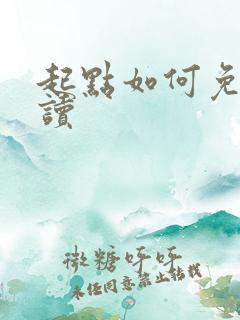 起點如何免
讀
微糖呼呼
未經同意禁止轉載